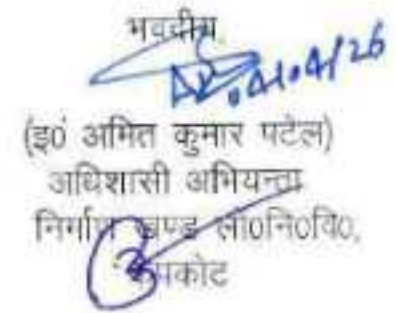 भवदीय,
04/04/26
(इ0 अमित कुमार पटेल)
अधिशासी अभियन्ता
निर्माण खण्ड लो0नि0वि0,
कपकोट